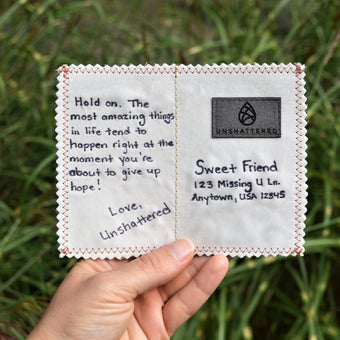 Hold on. The
most amazing things
in life tend to
happen right at the
moment you're
about to give up
hope!
Love,
Unshattered
UNSHATTERED
Sweet Friend
123 Missing U Ln.
Anytown, USA 12545